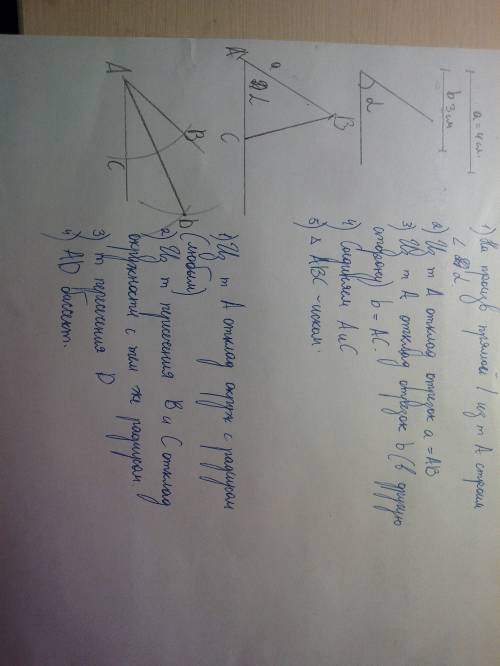 a = 4 см.
b 3 см
α
1) На произв прямой l из т A строим
∠ α
2) Из т A отклад отрезок a = AB
3) Из т A отклад отрезок b (в другую
сторону) b = AC.
4) Соединяем A и C
5) △ ABC - искам.
A
a
α
B
C
1) Из т A отклад окруж с радиусом
(любым)
2) Из т пересечения B и C отклад
окружности с тем же радиусом.
3) т пересечения D
4) AD биссект.
A
B
C
D